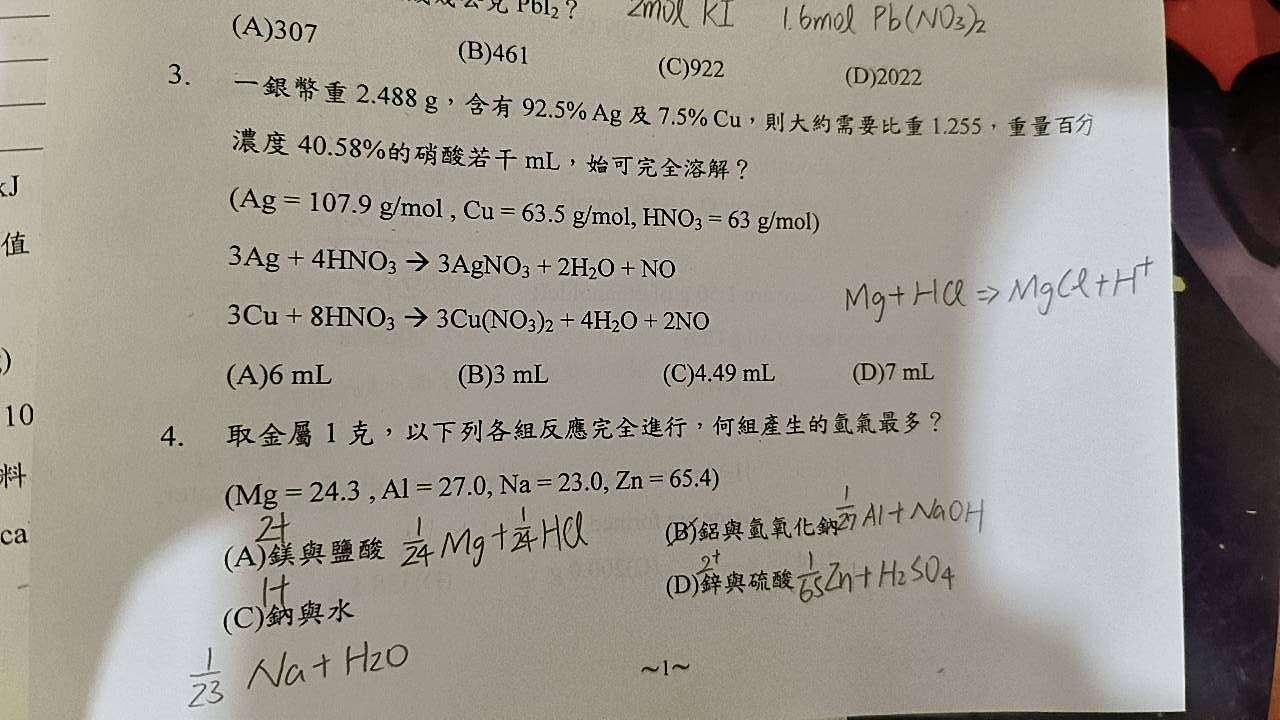 克 PbI₂？ 2mol KI 1.6mol Pb(NO₃)₂
(A)307 (B)461 (C)922 (D)2022
3. 一銀幣重 2.488 g，含有 92.5% Ag 及 7.5% Cu，則大約需要比重 1.255，重量百分
濃度 40.58%的硝酸若干 mL，始可完全溶解？
(Ag = 107.9 g/mol , Cu = 63.5 g/mol, HNO₃ = 63 g/mol)
3Ag + 4HNO₃ → 3AgNO₃ + 2H₂O + NO
Mg+HCl⇒MgCl+H⁺
3Cu + 8HNO₃ → 3Cu(NO₃)₂ + 4H₂O + 2NO
(A)6 mL (B)3 mL (C)4.49 mL (D)7 mL
4. 取金屬 1 克，以下列各組反應完全進行，何組產生的氫氣最多？
(Mg = 24.3 , Al = 27.0, Na = 23.0, Zn = 65.4)
2+
(A)鎂與鹽酸 1/24 Mg+1/24 HCl (B)鋁與氫氧化鈉 1/27 Al+NaOH
1+ 2+
(C)鈉與水 (D)鋅與硫酸 1/65 Zn+H₂SO₄
1/23 Na+H2O
～1～
kJ
值
)
10
料
ca